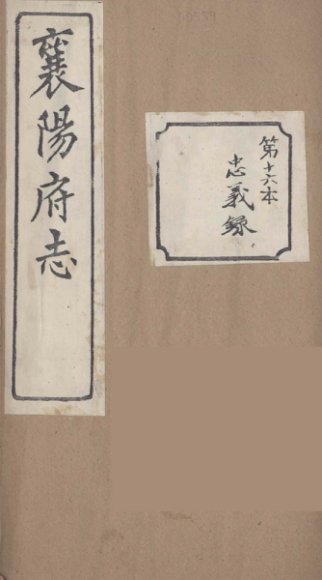 襄陽府志
第十六本
忠義録